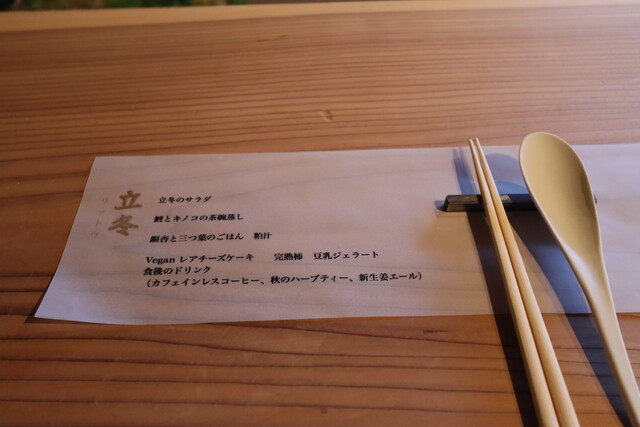 立冬
りっとう
立冬のサラダ
鱈とキノコの茶碗蒸し
銀杏と三つ葉のごはん　粕汁
Vegan レアチーズケーキ　完熟柿　豆乳ジェラート
食後のドリンク
（カフェインレスコーヒー、秋のハーブティー、新生姜エール）